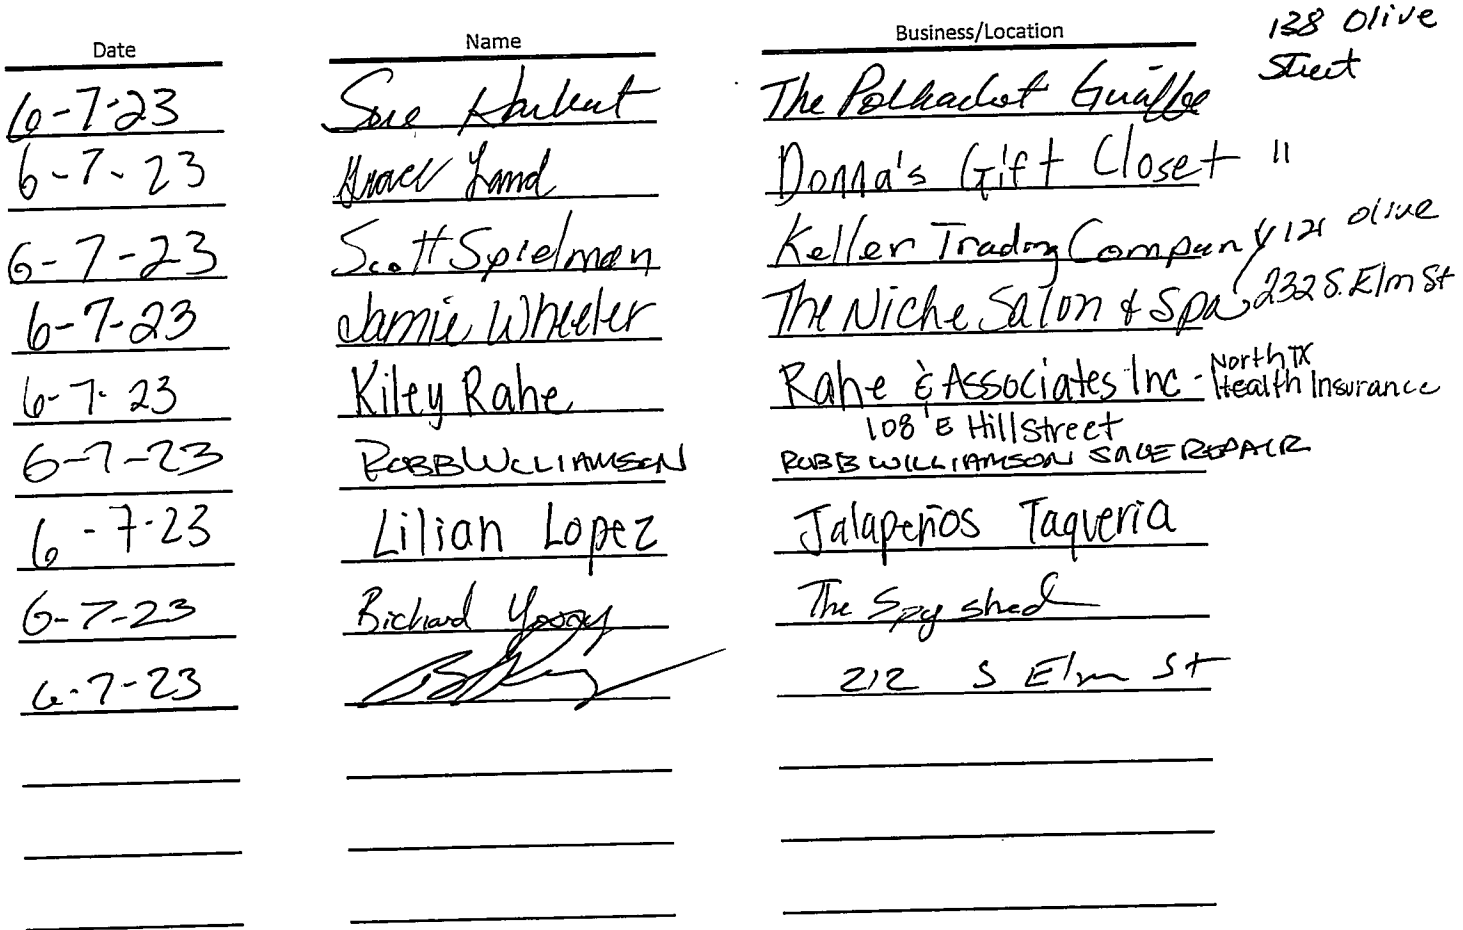 Date Name Business/Location 138 Olive
Street
6-7-23 Sue The Polkadot
6-7-23 Grace Land Donna's Gift Closet "
6-7-23 Scott Spielman Keller Trading Company 121 Olive
6-7-23 Jamie Wheeler The Niche Salon & Spa, 232 S. Elm St
6-7-23 Kiley Rahe Rahe & Associates Inc - North TX Health Insurance
108 E Hill Street
6-7-23 ROBB WILLIAMSON ROBB WILLIAMSON REPAIR
6-7-23 Lilian Lopez Jalapeños Taqueria
6-7-23 Richard The Spy shed
6-7-23 212 S Elm St